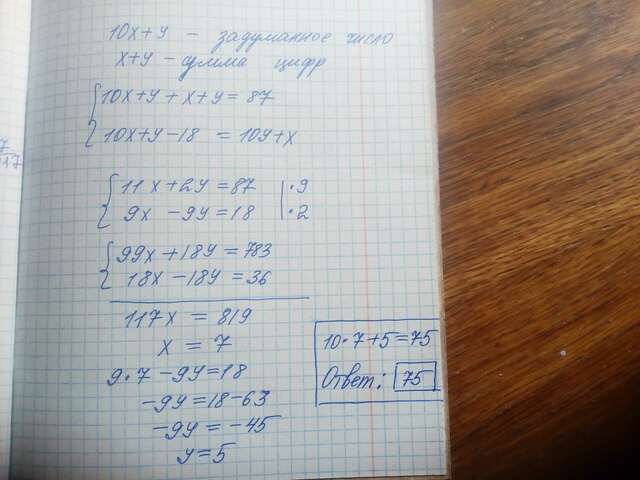 10x+y - задуманное число
x+y - сумма цифр
10x+y+x+y=87
10x+y-18 = 10y+x
11x+2y=87 | •9
9x -9y=18 | •2
99x+18y=783
18x-18y=36
117x = 819
x = 7
9•7-9y=18
-9y=18-63
-9y=-45
y=5
10•7+5=75
Ответ: 75